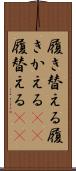 履き替える履
きかえる
履替える